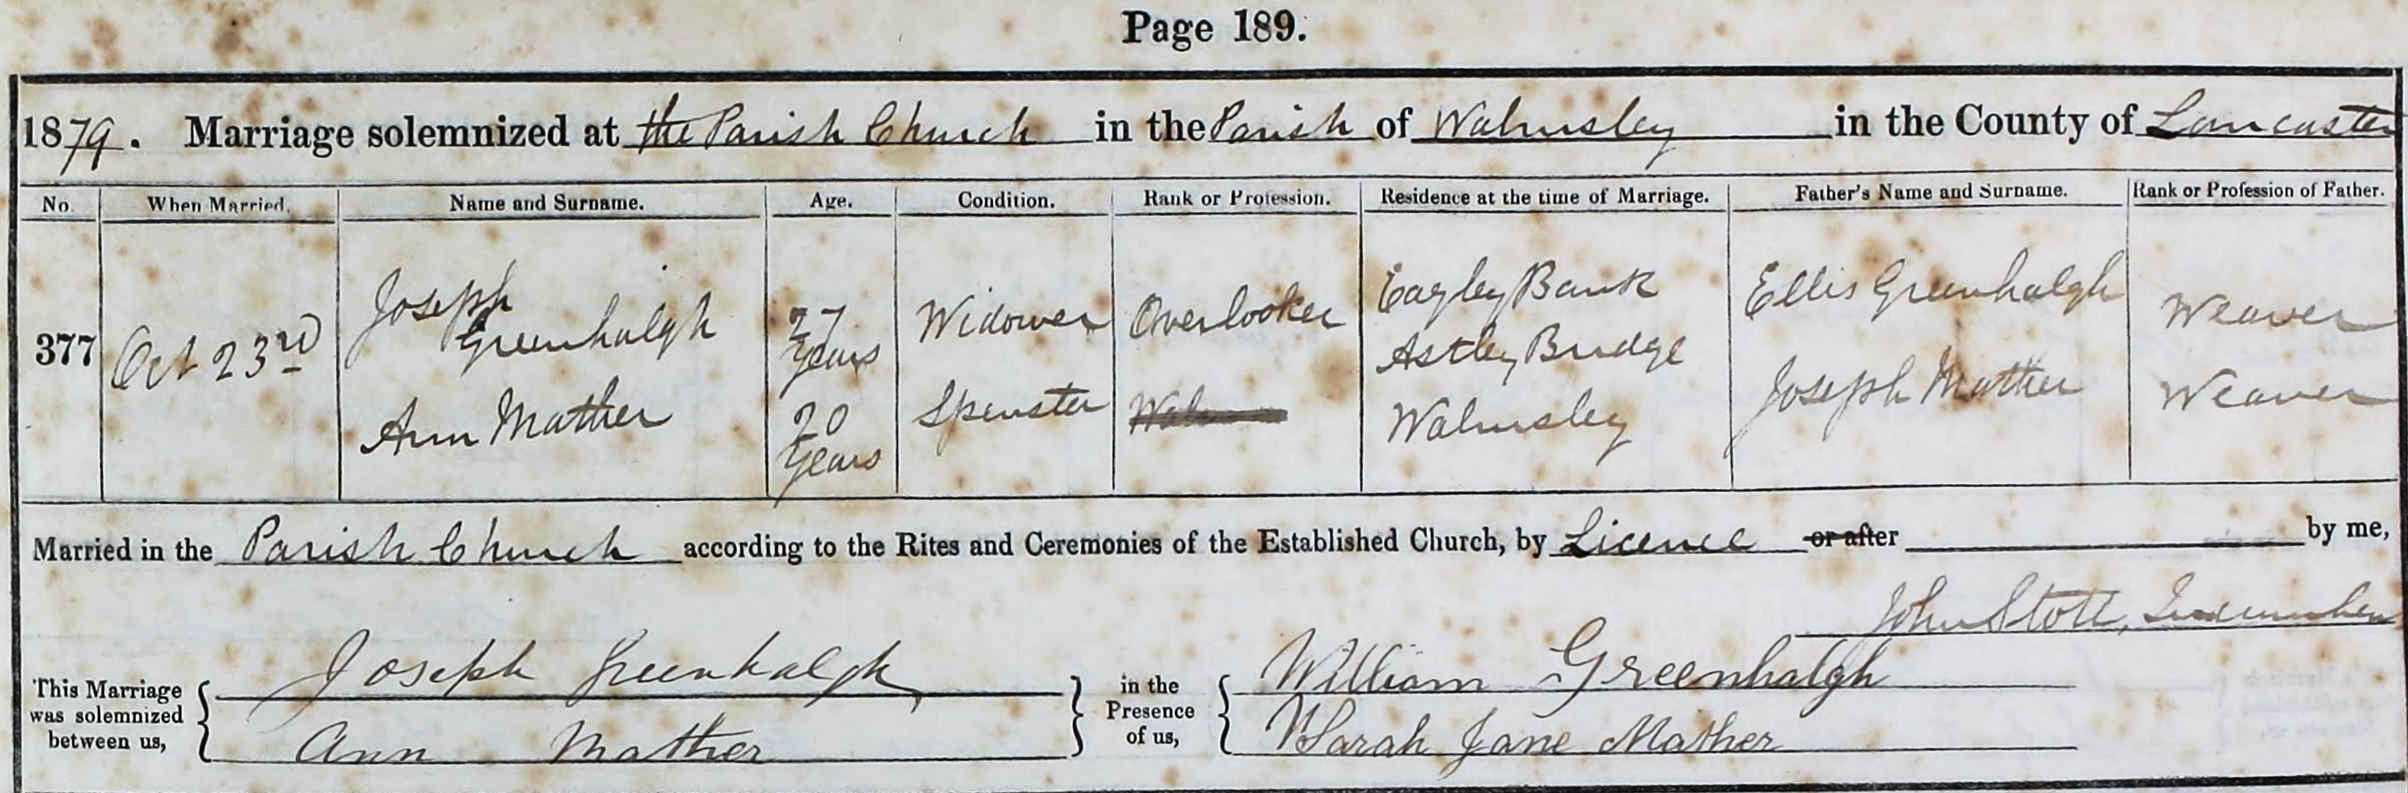 Page 189.
1879. Marriage solemnized at the Parish Church in the Parish of Walmsley in the County of Lancaster
No. When Married. Name and Surname. Age. Condition. Rank or Profession. Residence at the time of Marriage. Father's Name and Surname. Rank or Profession of Father.
377 Oct 23rd Joseph Greenhalgh 27 Years Widower Overlooker Eagley Bank Astley Bridge Ellis Greenhalgh Weaver
Ann Mather 20 Years Spinster Walmsley Joseph Mather Weaver
Married in the Parish Church according to the Rites and Ceremonies of the Established Church, by Licence or after by me,
John Stott, Incumbent
This Marriage was solemnized between us, Joseph Greenhalgh Ann Mather in the Presence of us, William Greenhalgh Sarah Jane Mather